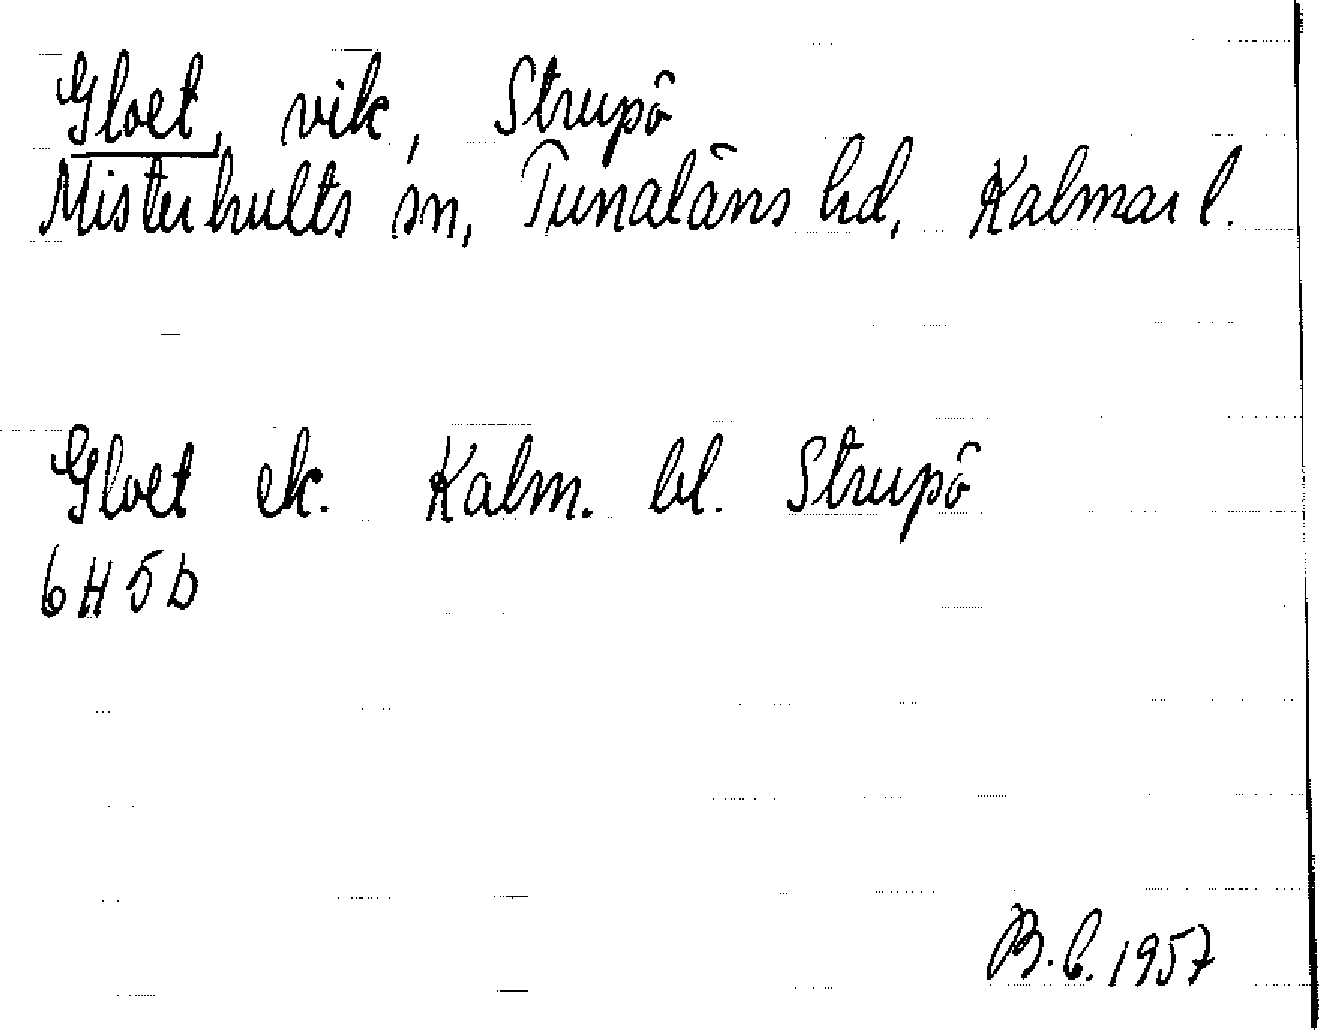 Gloet, vik, Strupö
Misterhults sn, Tunaläns hd, Kalmar l.
Gloet ek. Kalm. bl. Strupö
6H5b
B.C. 1957